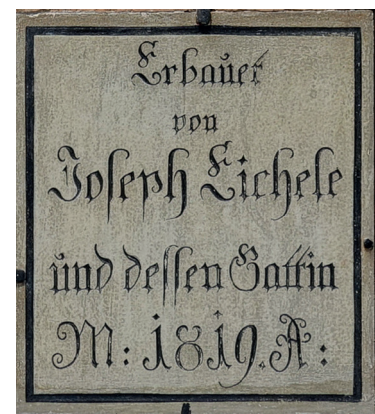 Erbauet
von
Joseph Eichele
und dessen Gattin
M: 1819. A: